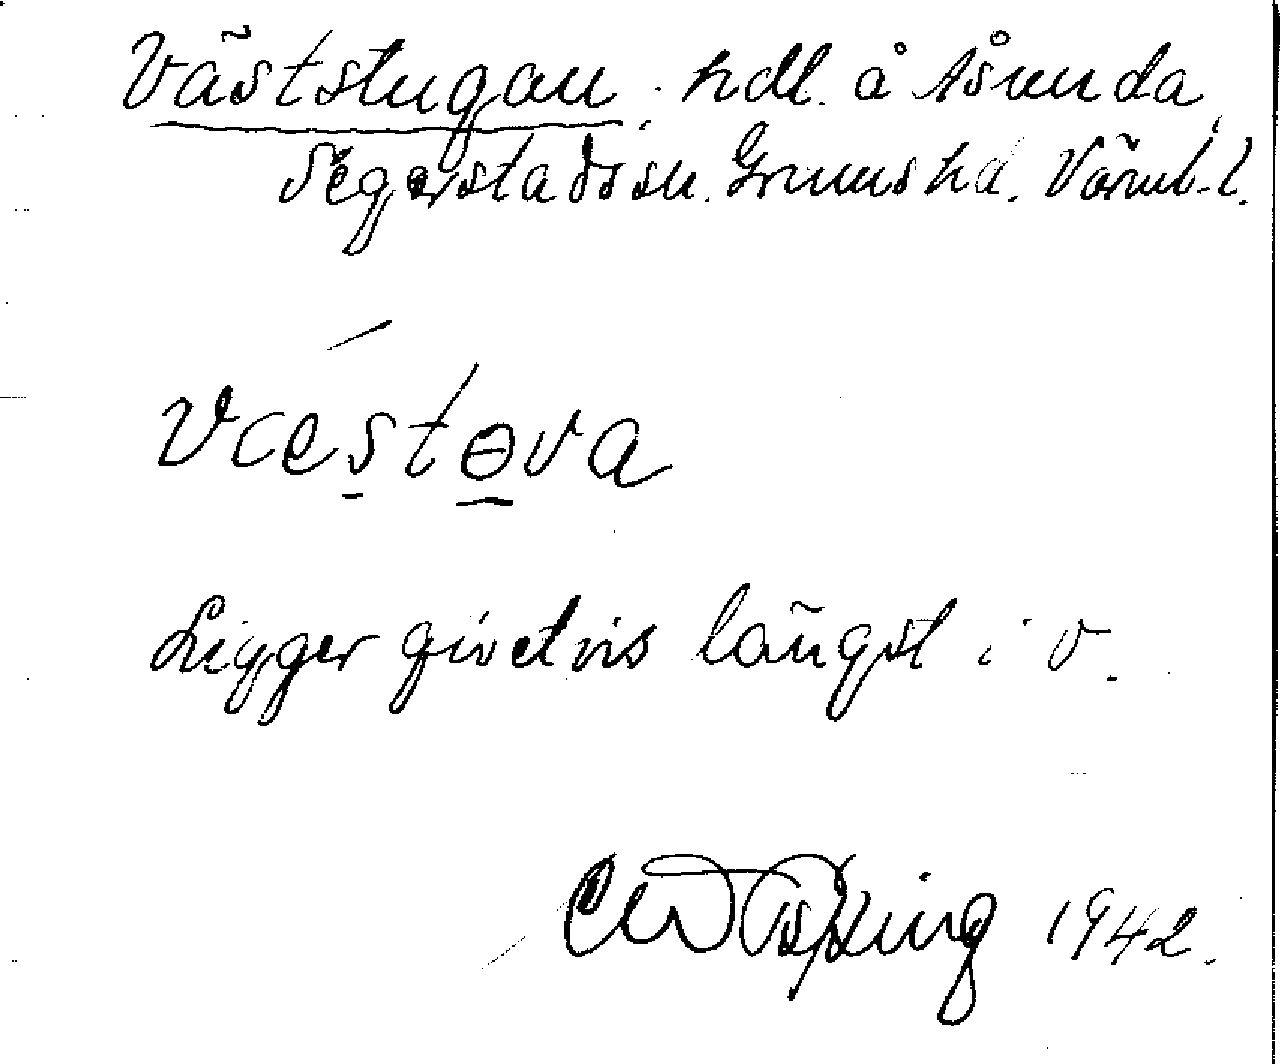 Väststugan, hdl. å Åsunda,
Segerstads sn. Grums hd. Värml. l.
væstɵva
Ligger givetvis längst i v.
1942.